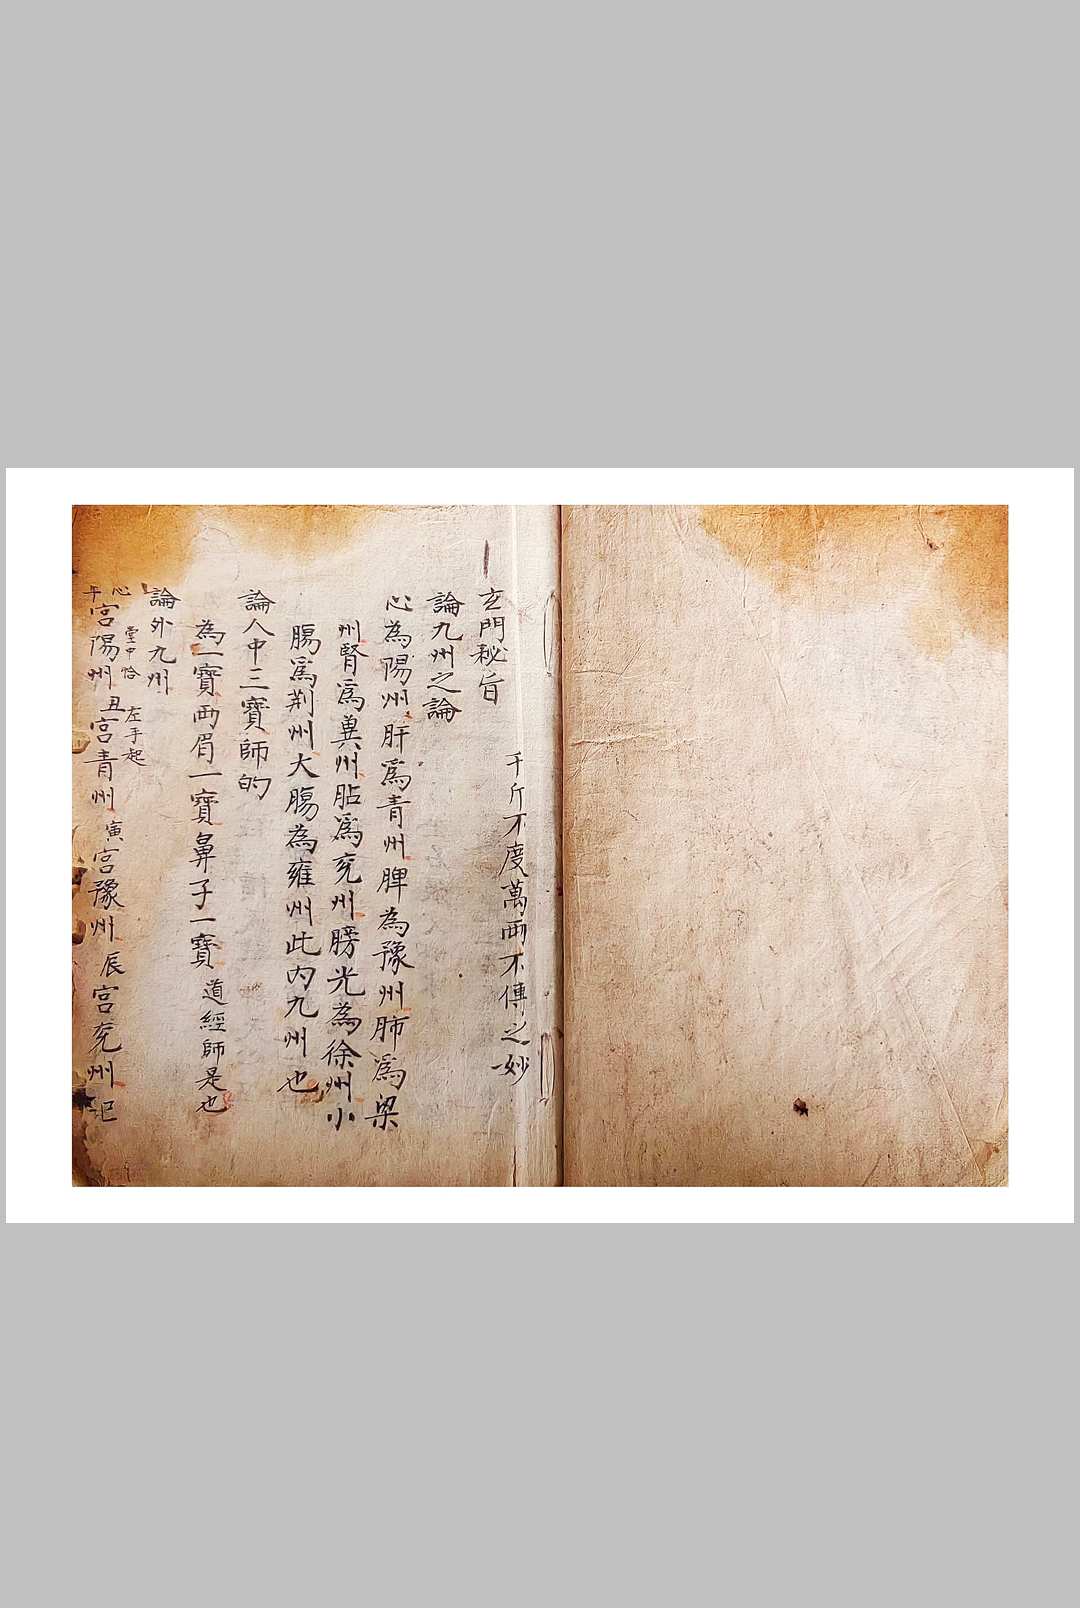 玄門秘旨
千斤不度萬両不傳之妙
論九州之論
心為陽州肝爲青州脾為豫州肺爲梁
州腎爲兾州胋爲兖州膀光為徐州小
腸爲荆州大腸為雍州此內九州也
論人中三寶師的
為一寶両眉一寶鼻子一寶道經師是也
論外九州
心堂中恰左手起
午宮陽州丑宮青州寅宮豫州辰宮兖州